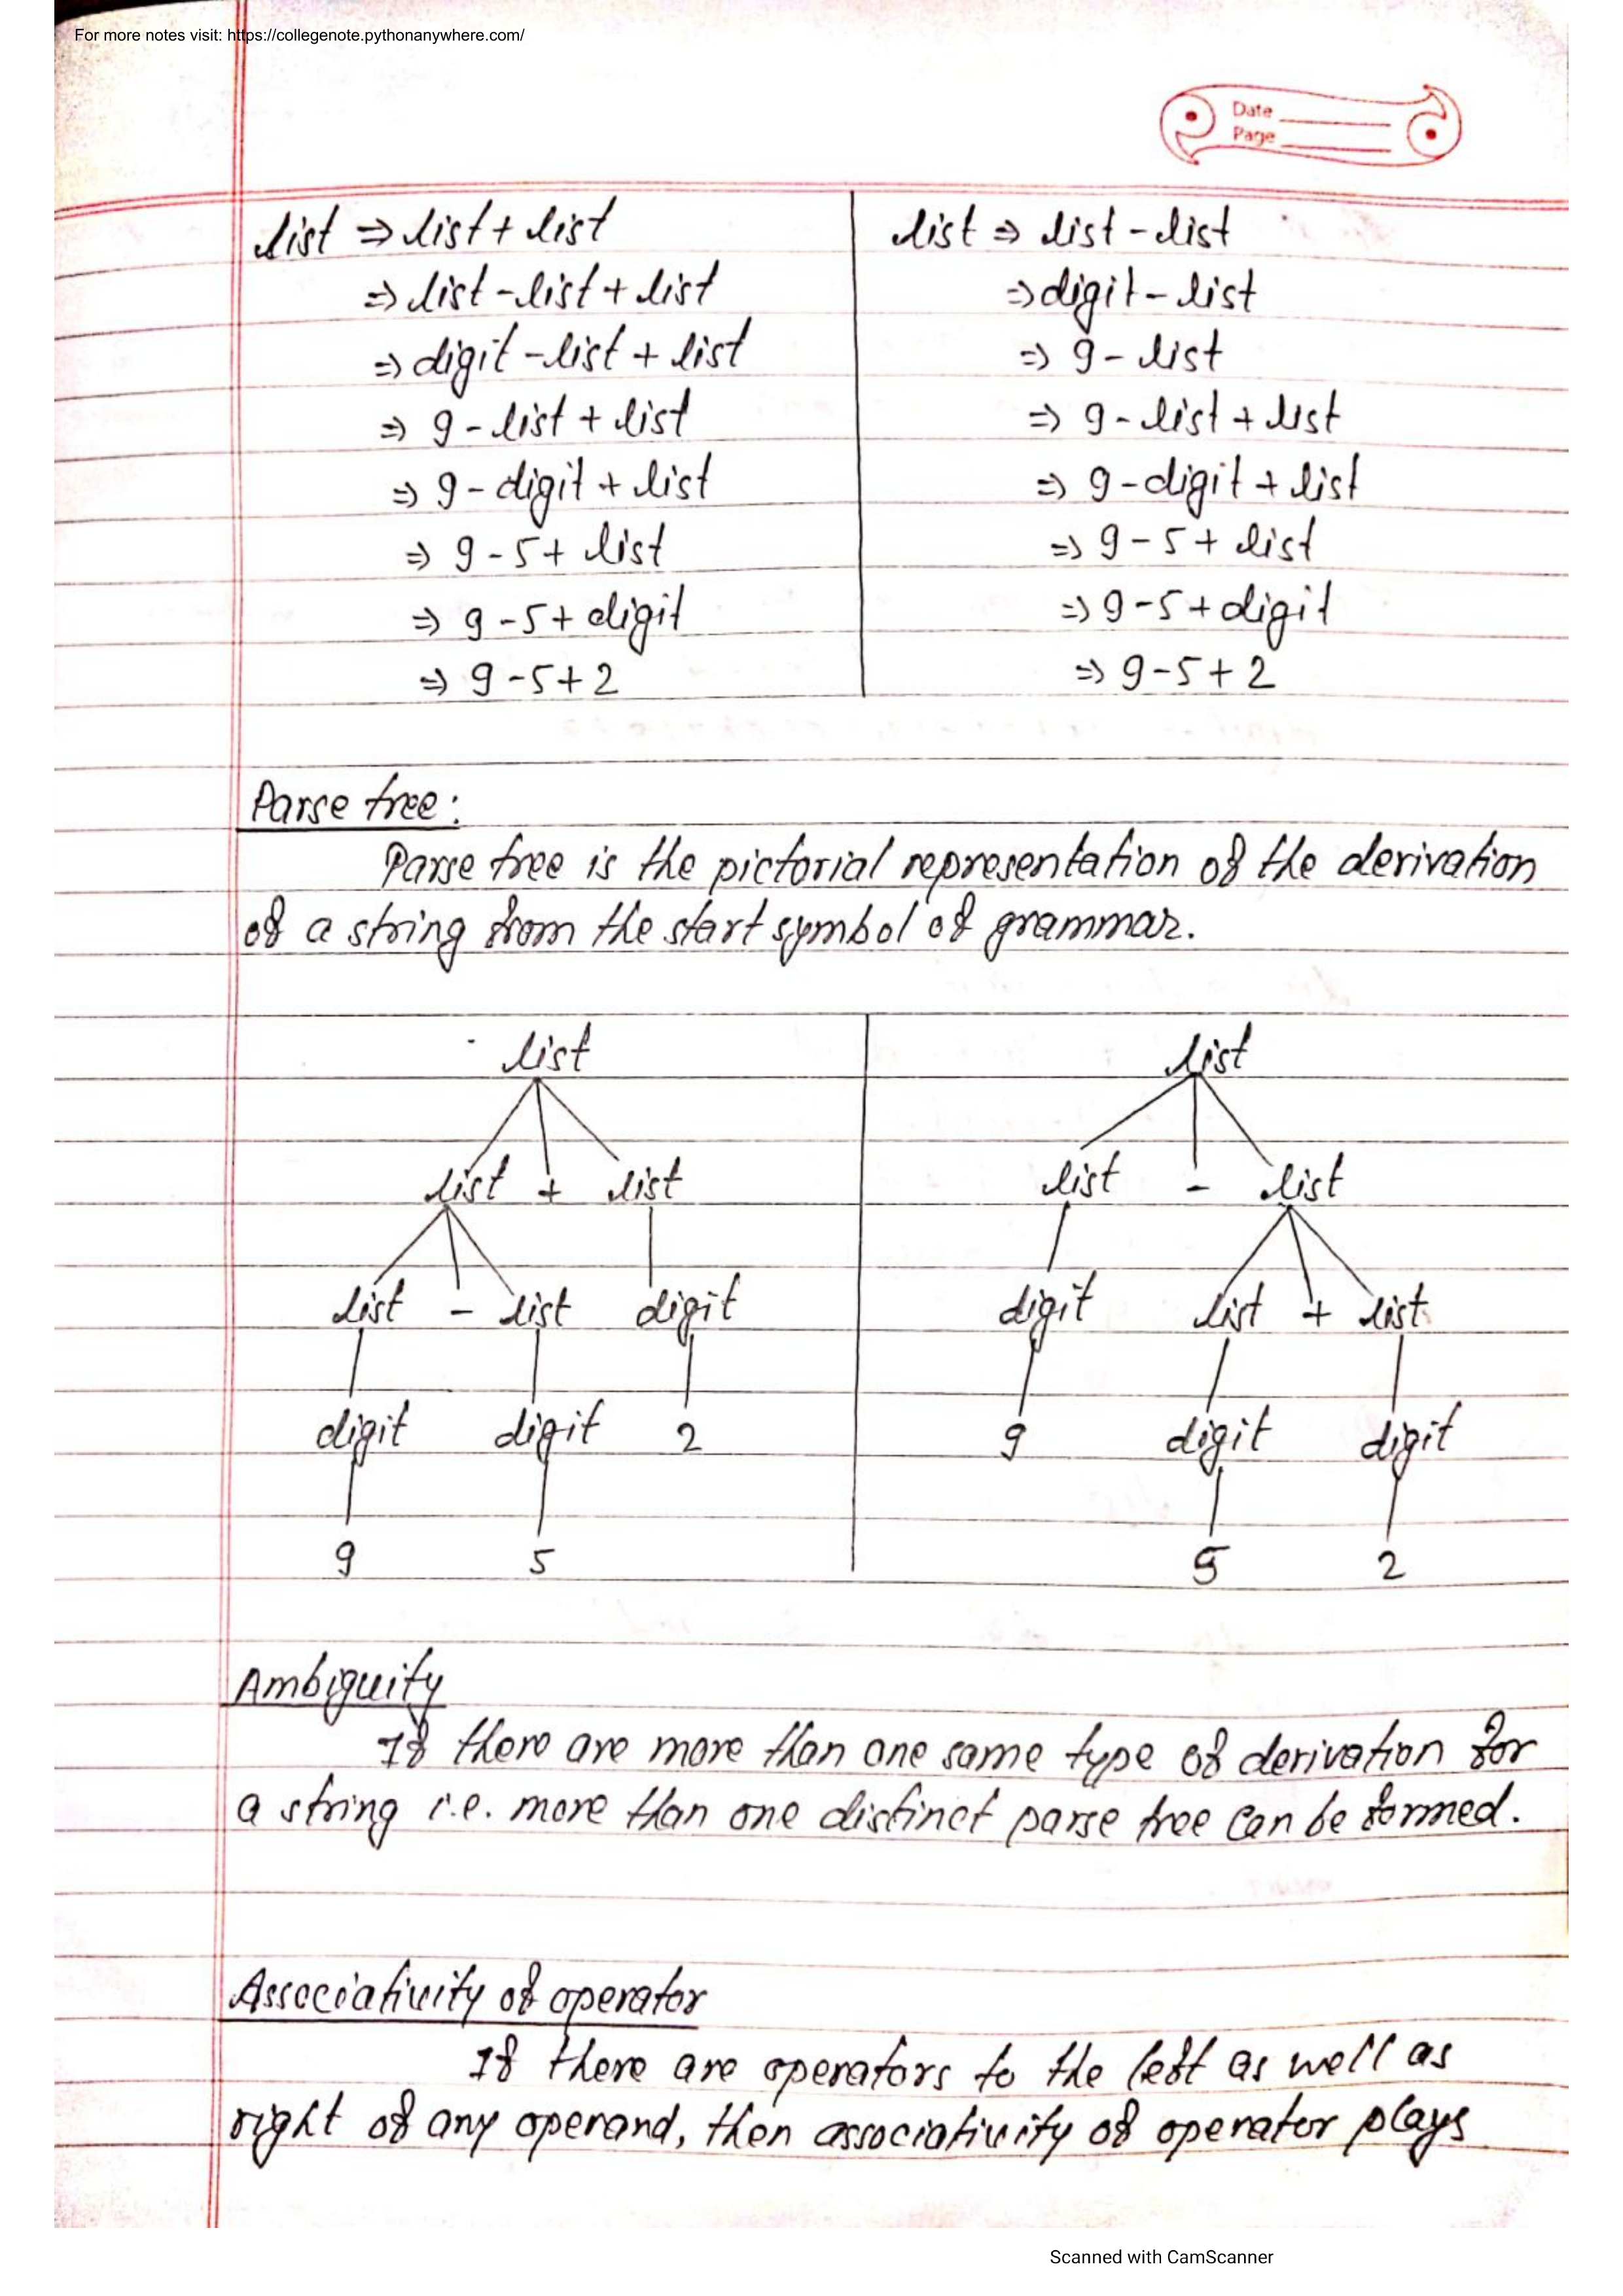 For more notes visit: https://collegenote.pythonanywhere.com/
Date
Page
list ⇒ list + list
⇒ list - list + list
⇒ digit - list + list
⇒ 9 - list + list
⇒ 9 - digit + list
⇒ 9 - 5 + list
⇒ 9 - 5 + digit
⇒ 9 - 5 + 2
list ⇒ list - list
⇒ digit - list
⇒ 9 - list
⇒ 9 - list + list
⇒ 9 - digit + list
⇒ 9 - 5 + list
⇒ 9 - 5 + digit
⇒ 9 - 5 + 2
Parse tree:
Parse tree is the pictorial representation of the derivation
of a string from the start symbol of grammar.
list
list + list
list - list digit
digit digit 2
9 5
list
list - list
digit list + list
9 digit digit
5 2
Ambiguity
If there are more than one same type of derivation for
a string i.e. more than one distinct parse tree can be formed.
Associativity of operator
If there are operators to the left as well as
right of any operand, then associativity of operator plays
Scanned with CamScanner